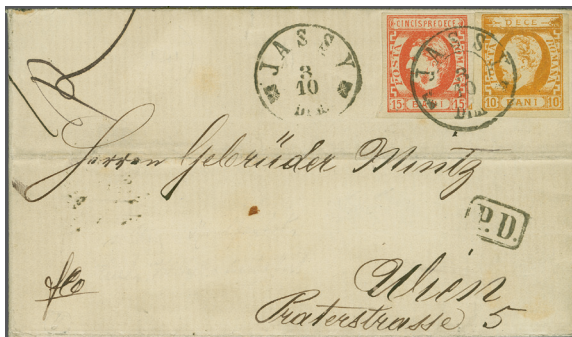 JASSY
3
10
CINCISPREDECE
POSTA
15 BANI 15
JASSY
3
10
DECE
POSTA
10 BANI 10
Herren Gebrüder Mintz
P.D.
fco
Wien
Praterstrasse 5